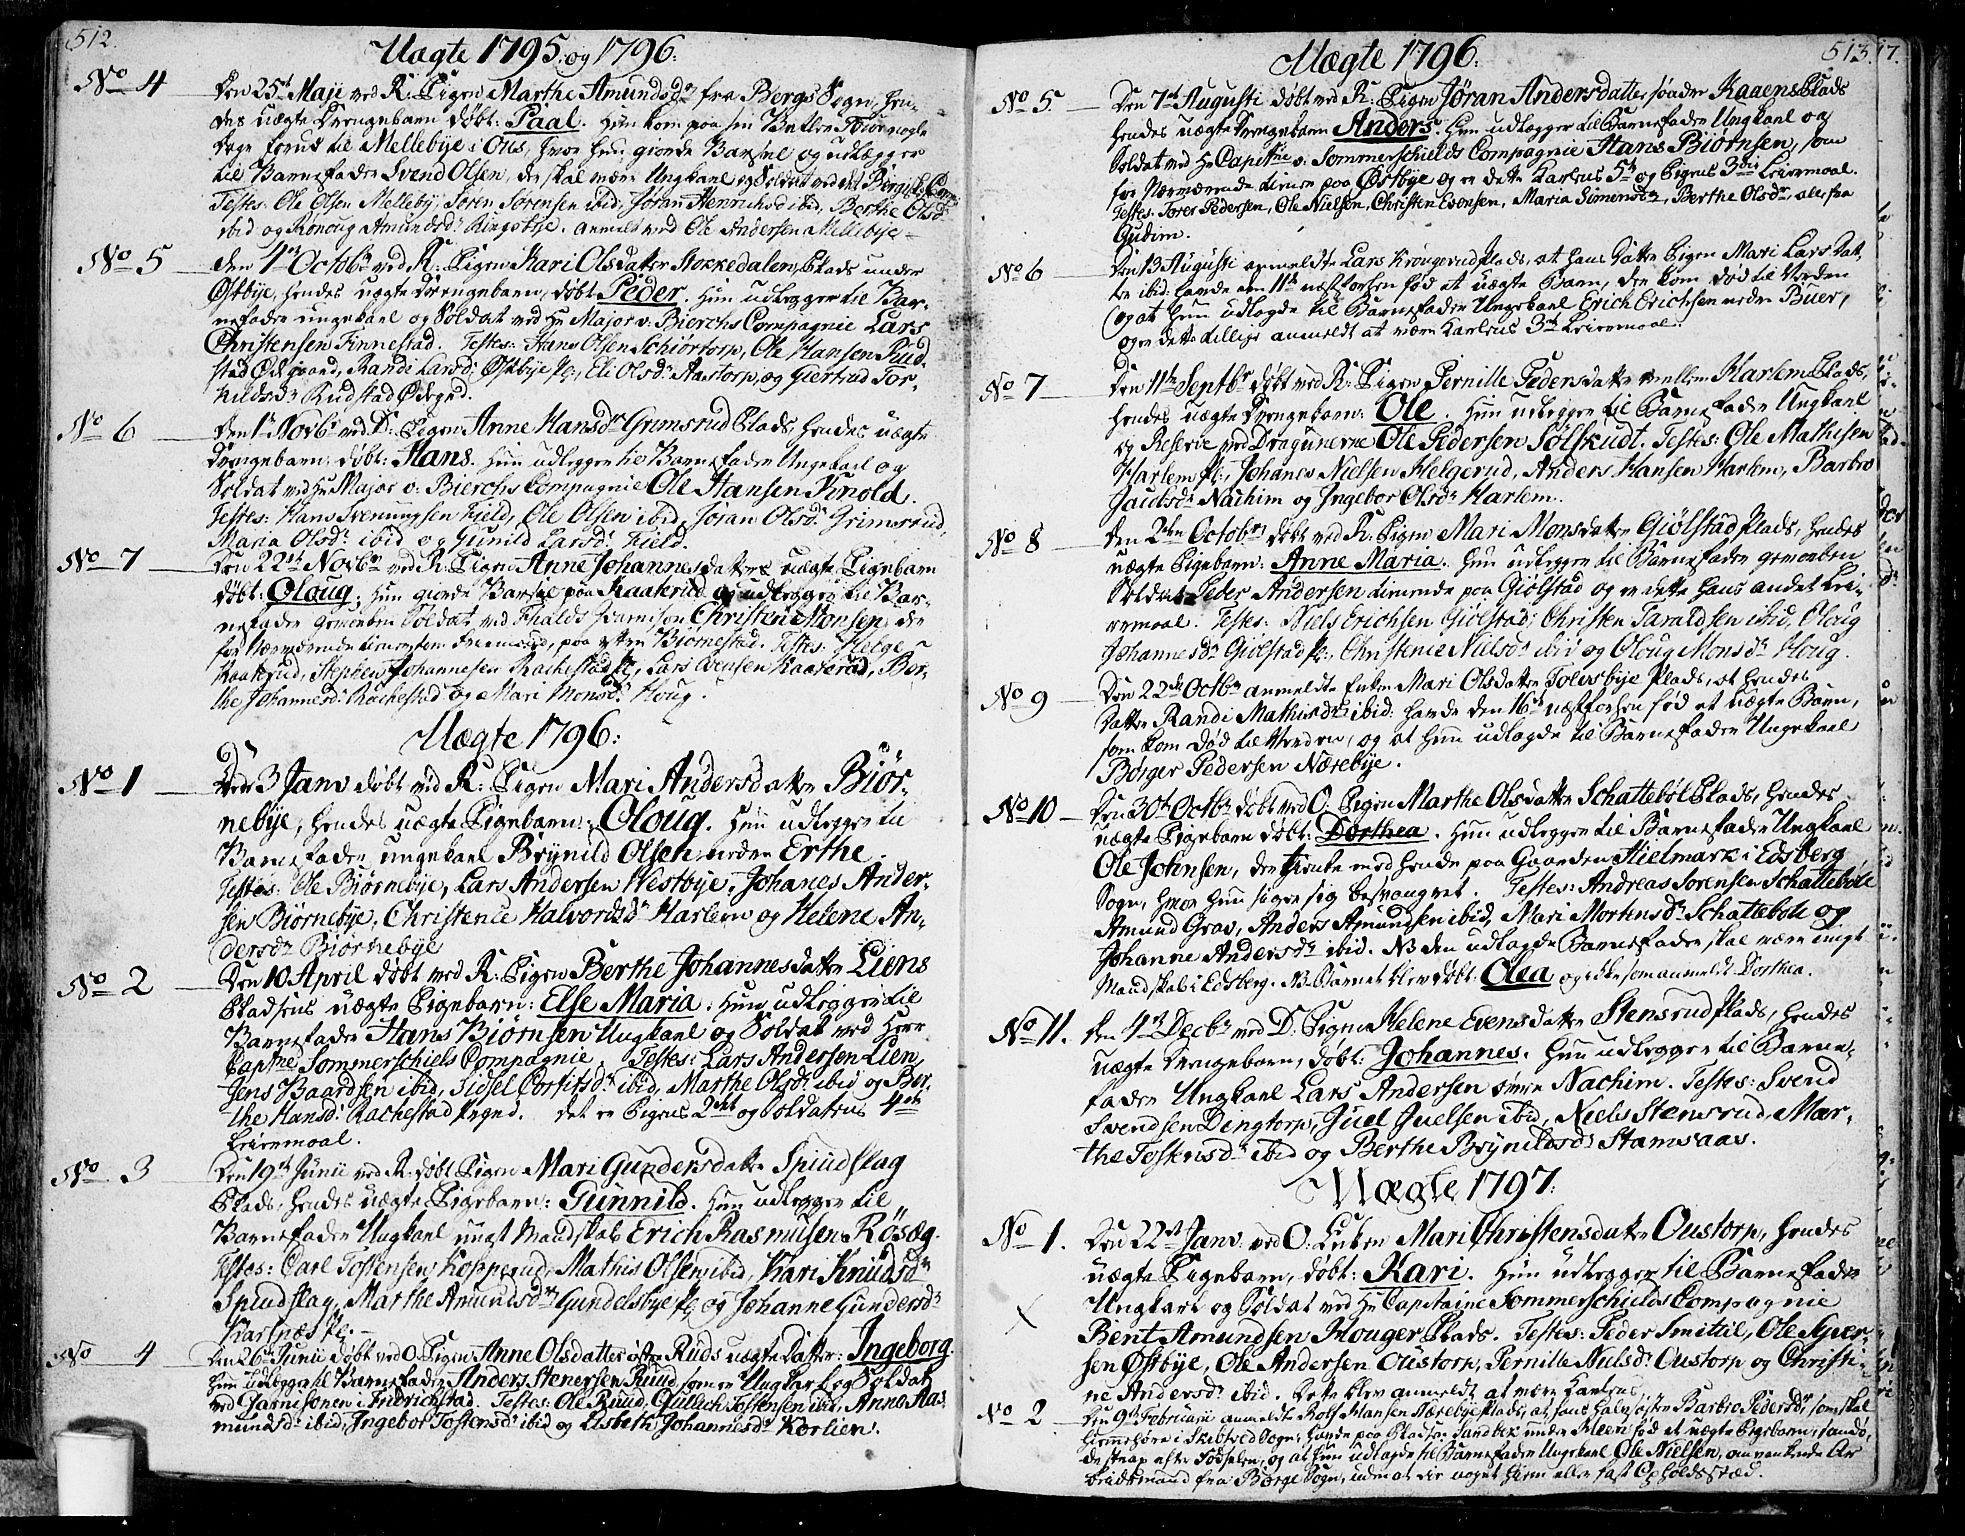 512.
Uægte 1795. og 1796.
No 4 Den 25de Maji ved R: Pigen Marthe Amundsdr fra Bergs Sogn, hen-
des uægte Drengebarn døbt: Paal. Hun kom paa sin Vei
Dage forud til Mellebye i Ous, hvor hun giorde Barsel og udlægger
til Barnefader Svend Olsen, der skal være Ungkarl og Soldat ved det
Testes: Ole Olsen Mellebÿ, Søren Sørensen ibid, Jøran Henrichsd ibid, Berthe Olsdr
ibid og Rønoug Amundsdr Ringstye. anmeldt ved Ole Andersen Mellebÿe
No 5 den 4de Octobr ved R: Pigen Kari Olsdatter Stokkedalen Plads under
Østbÿe, hendes uægte Drengebarn, døbt Peder. Hun udlegger til Bar-
nefader ungekarl og Soldat ved Hr Major v: Bierchs Compagnie Lars
Christensen Finnestad. Testes: Hans Olsen Schiørtorp, Ole Hansen Rud-
stad Ødegaard, Randi Larsd: Østbÿe Pl:, Eli Olsdr Aastorp, og Giertrud Tor-
kildsdr Rudstad Ødegrd.
No 6 Den 1te Novbr ved D: Pigen Anne Hansdr Grimsrud Plads, hendes uægte
Drengebarn, døbt: Hans. Hun udlegger til Barnefader Ungekarl og
Soldat ved Hr Major v: Bierchs Compagnie Ole Hansen Kinold.
Testes: Hans Svenningsen Field, Ole Olsen ibid, Jøran Olsdr Grimsrud,
Maria Olsdr ibid og Gunild Larsdr Field.
No 7 Den 22de Novbr ved R: Pigen Anne Johannesdatters uægte Pigebarn
døbt: Oloug; hun giorde Barsel paa Kaaterud og udlegger til Bar-
nefader gevorben Soldat ved Fhalds Guarnison Christen Monsen, der
for Nærværende tiener paa Biørnestad. Testes: Helge
Kaaterud, Stephen Johannesen Rachestad Pl:, Lars Evensen Kaaterud, Ber-
the Johannesdr Rachestad og Mari Monsdr Houg.
Uægte 1796:
No 1 Den 3 Janv døbt ved R: Pigen Mari Andersdatter Biør-
nebÿe, hendes uægte Pigebarn: Oloug. Hun udlegger til
Barnefader ungekarl Brÿnild Olsen nedre Erthe.
Testes: Ole Biørnebÿe, Lars Andersen Westbÿe, Johanes Ander-
sen Biørnebÿe, Christense Halvordsdr Harlem og Helene An-
dersdr Biørnebÿe
No 2 Den 10 April døbt ved R: Pigen Berthe Johannesdatter Liens
Pladsens uægte Pigebarn: Else Maria. Hun udlegger til
Barnefader Hans Biørnsen Ungkarl og Soldat ved Herr
Captne Sommerschiels Compagnie. Testes: Lars Andersen Lien,
Jens Baardsen ibid, Sidsel ibid, Marthe Olsdr ibid og Ber-
the Hansdr Rachestad Øegrd. det er Pigens 2det og Soldatens 4de
Leiermaal.
No 3 Den 19de Junii ved R: døbt Pigen Mari Gundersdatter Spiudslag
Plads, hendes uægte Pigebarn: Gunnild. Hun udlegger til
Barnefader Ungkarl ungt Mandskab Erich Rasmusen Røsæg.
Testes: Carl Tostensen Kopperud, Mathis Olsen ibid, Kari Knudsdr
Spiudslag, Marthe Amundsdr Gundelsbÿe Pl: og Johanne Gundersdr
Kartnæs Pl:
No 4 Den 26 Junii døbt ved O. Pigen Anne Olsdatter østre Ruds uægte Datter: Ingeborg.
Hun udlegger til Barnefader Anders Stenersen Ruud, som er Ungkarl og Soldat
ved Garnisonen i Fridrichstad. Testes: Ole Ruud, Gulach Tostensen ibid, Anne Aas-
mundsdr ibid, Ingebor Tostensdr ibid og Lisbeth Johannesdr Korlien.
513. 17.
Uægte 1796.
No 5 Den 7de Augusti døbt ved R: Pigen Jøran Andersdatter søndre Kaaens Plads
hendes uægte Drengebarn Anders. Hun udlegger til Barnefader Ungkarl og
Soldat ved Hr Capitne v: Sommerschields Compagnie Hans Biørnsen, som
for Nærværende tiener paa Østbÿe og er dette Karlens 5te og Pigens 3die Leiermaal.
Testes: Torer Pedersen, Ole Nielsen, Christen Evensen, Maria Simensdr, Berthe Olsdr, alle fra
Gudim.
No 6 Den 13 Augusti anmeldte Lars Krøngerud Plads, at hans Datter Pigen Mari Larsdat-
ter ibid. havde den 11te næstforhen fød et uægte Barn, der kom død til Verden
(og at hun udlagde til Barnefader Ungekarl Erich Erichsen nedre Buer,
og er dette tillige anmeldt at være Karlens 3die Leiermaal.
No 7 Den 11te Septbr døbt ved R: Pigen Pernille Pedersdatter mellem Harlem Plads,
hendes uægte Drengebarn: Ole. Hun udlegger til Barnefader Ungkarl
og Reserve ved Dragunerne Ole Pedersen Sølfkudt. Testes: Ole Mathisen
Harlem Pl:, Johanes Nielsen Helgerud, Anders Hansen Harlem, Barbro
Nachim og Ingebor Olsdr Harlem.
No 8 Den 2den Octobr døbt ved R: Pigen Mari Monsdatter Giølstad Plads, hendes
uægte Pigebarn: Anne Maria. Hun udlegger til Barnefader gevorben
Soldat Peder Andersen tienende paa Giølstad og er dette hans andet Lei-
ermaal. Testes: Niels Erichsen Giølstad, Christen Taraldsen ibid, Oloug
Johannesdr Giølstad Pl:, Christense Nielsdr ibid og Oloug Monsdr Houg.
No 9 Den 22de Octbr anmeldte Enken Mari Olsdatter Tolvsbÿe Plads, at hendes
Datter Randi Mathisdr ibid: havde den 16de næstforhen fød et uægte Barn,
som kom død til Verden, og at hun udlagde til Barnefader Ungekarl
Børger Pedersen Nærebÿe.
No 10 Den 30te Octbr døbt ved O. Pigen Marthe Olsdatter Schattebøl Plads, hendes
uægte Pigebarn døbt: Dorthea. Hun udlegger til Barnefader Ungkarl
Ole Johnsen, der tiente med hende paa Gaarden Hielmark i Edsberg
Sogn, hvor hun siger sig besvangret. Testes: Andreas Sørensen Schattebøle
Amund Grav, Anders Amundsen ibid, Mari Mortensdr Schattebøle og
Johanne Andersdr ibid. NB den udlagde Barnefader skal være ungt
Mandskab i Edsberg. NB Barnet blev døbt: Olea og ikke som anmeldt Dorthea.
No 11. Den 4de Decbr ved D. Pigen Helene Evensdatter Stensrud Plads, hendes
uægte Drengebarn, døbt: Johannes. Hun udlegger til Barne-
fader Ungkarl Lars Andersen øvre Nachim. Testes: Svend
Svendsen Dingtorp, Juel Juelsen ibid, Niels Stensrud, Mar-
the Tostensdr ibid og Berthe Brÿnildsdr Stamsaas.
Uægte 1797.
No 1. Den 22de Janv: ved O: Enken Mari Christensdatter Oustorp, hendes
uægte Pigebarn, døbt: Kari. Hun udlegger til Barnefader
Ungkarl og Soldat ved Hr Capitaine Sommerschields Compagnie
Bent Amundsen Houger Plads. Testes: Peder Smittil, Ole Syver-
sen Østbÿe, Ole Andersen Oustorp, Pernille Nielsdr Oustorp og Christi-
ne Andersdr ibid. Dette blev anmeldt at være Karlens
No 2 Den 9de Februarii anmeldte Rolf Hansen Nærebÿe Plads, at hans halvsøster Barbro Pedersdr, som skal
hiemmehøre i Skibtved Sogn, havde paa Pladsen Sandbek under Kleen fød et uægte Pigebarn, som dø-
de strax efter Fødselen, og at hun udlagde til Barnefader Ungekarl Ole Nielsen, omvankende Ar-
beidsmand fra Borge Sogn, uden at vie noget Hiem eller fast Opholdssted.